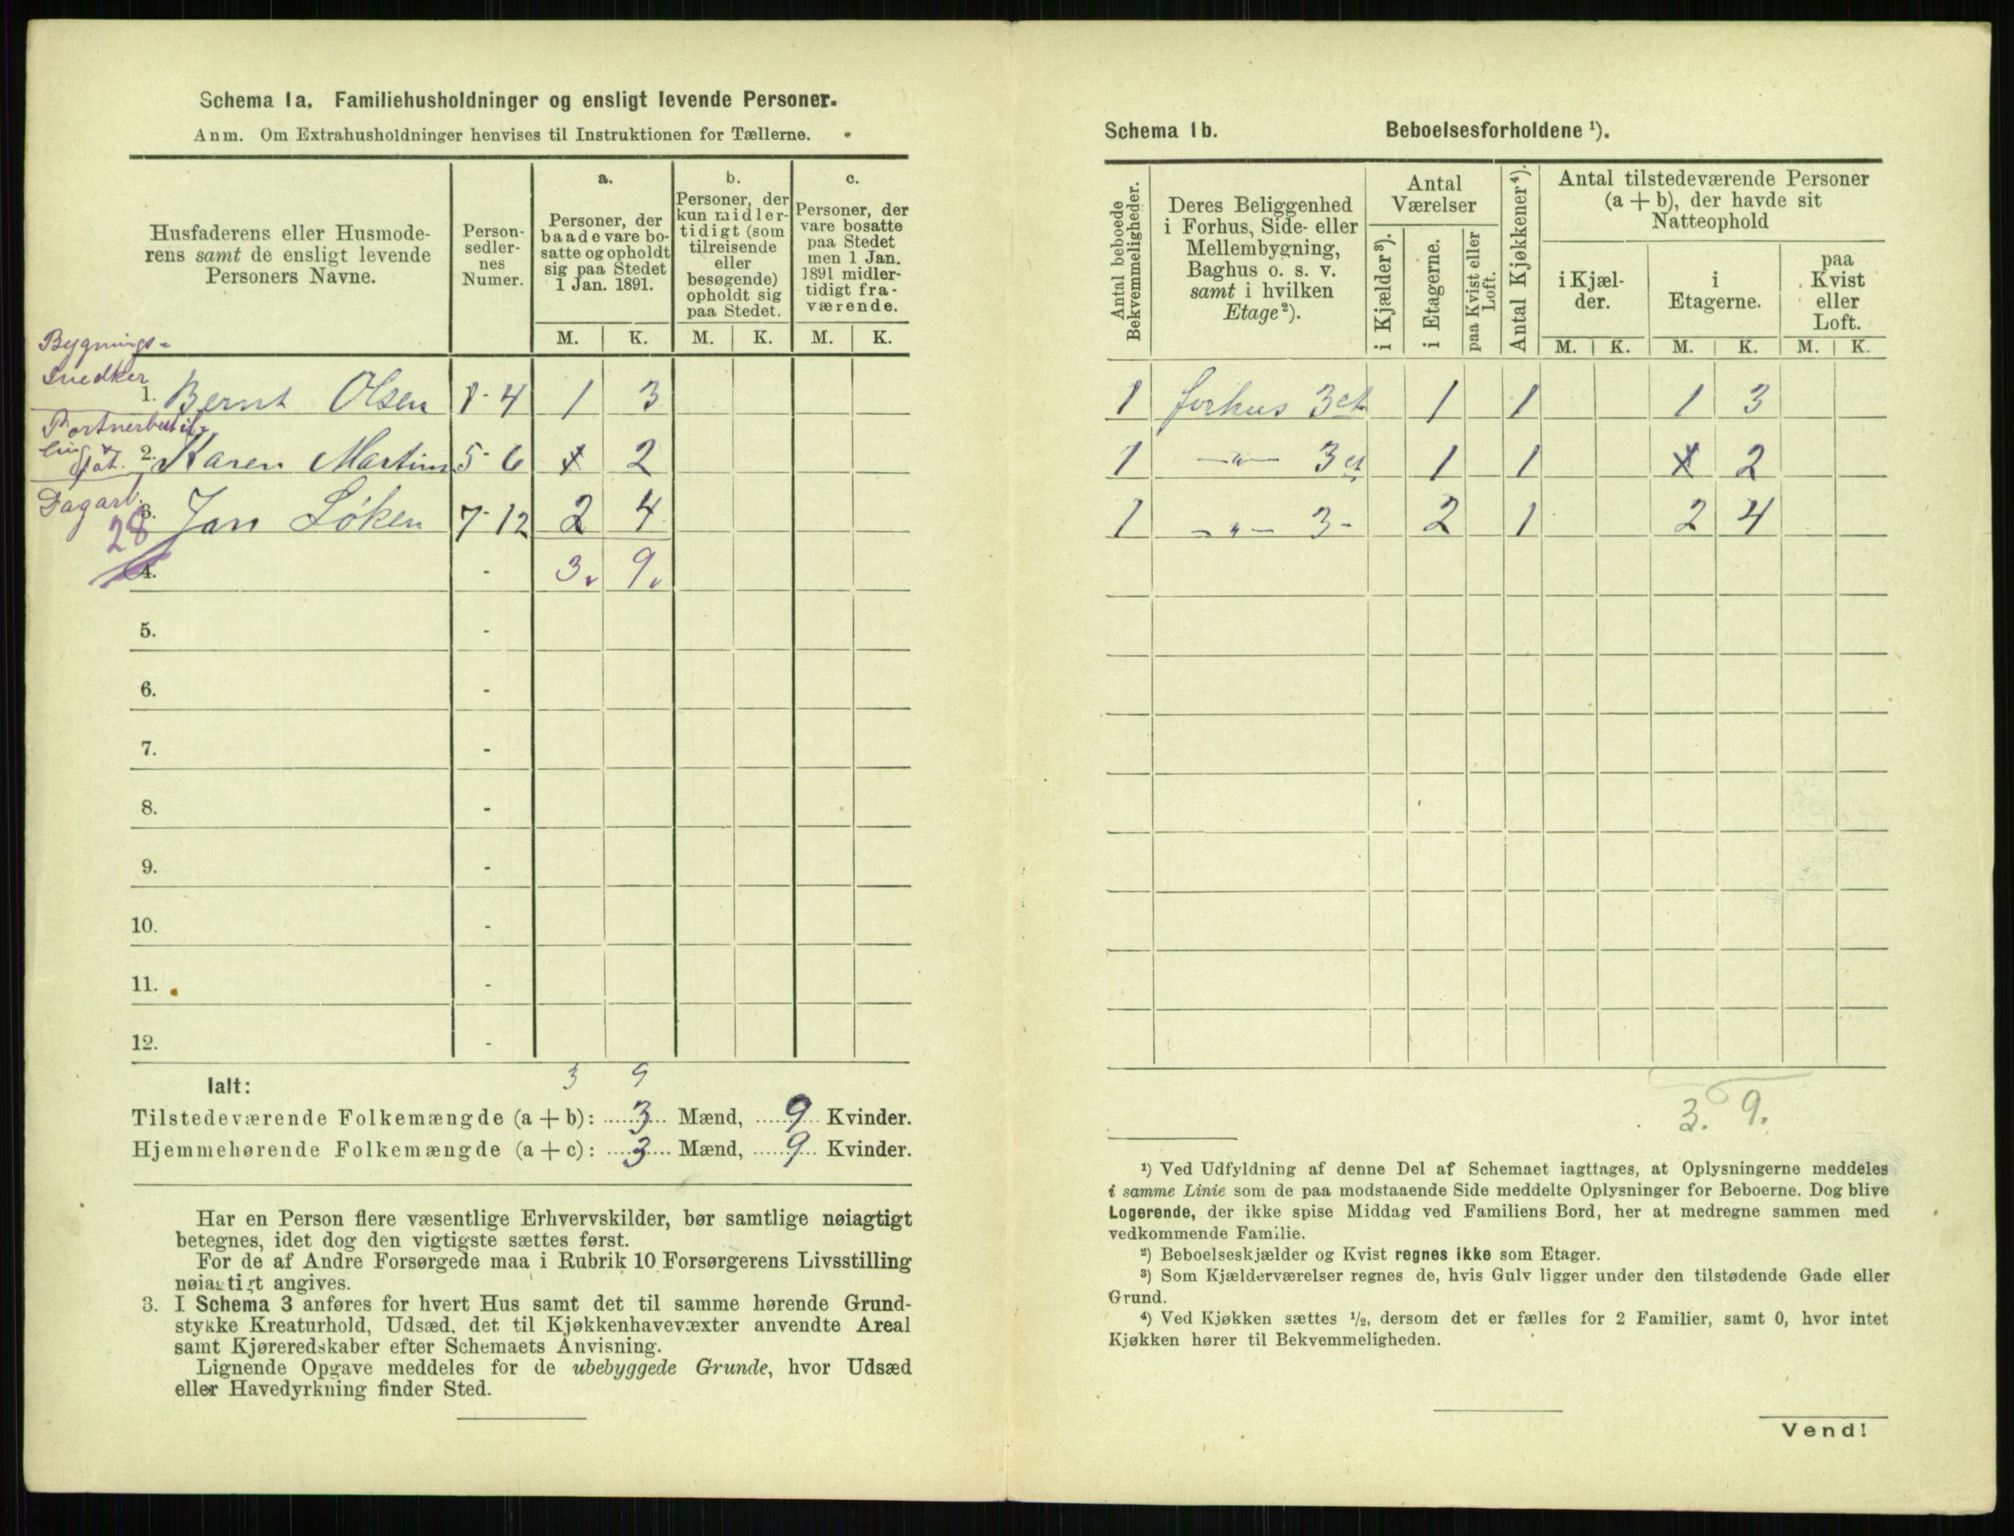 Schema 1a. Familiehusholdninger og ensligt levende Personer.
Anm. Om Extrahusholdninger henvises til Instruktionen for Tællerne.
Husfaderens eller Husmode-
rens samt de ensligt levende
Personers Navne.
Person-
sedler-
nes
Numer.
a.
Personer, der
baade vare bo-
satte og opholdt
sig paa Stedet
1 Jan. 1891.
b.
Personer, der
kun midler-
tidigt (som
tilreisende
eller
besøgende)
opholdt sig
paa Stedet.
c.
Personer, der
vare bosatte
paa Stedet
men 1 Jan.
1891 midler-
tidigt fra-
værende.
M. K. M. K. M. K.
Bygnings-
Snedker
1. Bernt Olsen 1-4 1 3
2. Karen Martins 5-6 2
Dagarb.
3. Jan Løken 7-12 2 4
28
4. - 3. 9.
5. -
6. -
7. -
8. -
9. -
10. -
11. -
12. -
3 9
Ialt:
Tilstedeværende Folkemængde (a + b): 3 Mænd, 9 Kvinder.
Hjemmehørende Folkemængde (a + c): 3 Mænd, 9 Kvinder.
Har en Person flere væsentlige Erhvervskilder, bør samtlige nøiagtigt
betegnes, idet dog den vigtigste sættes først.
For de af Andre Forsørgede maa i Rubrik 10 Forsørgerens Livsstilling
nøiagtigt angives.
3. I Schema 3 anføres for hvert Hus samt det til samme hørende Grund-
stykke Kreaturhold, Udsæd, det til Kjøkkenhavevæxter anvendte Areal
samt Kjøreredskaber efter Schemaets Anvisning.
Lignende Opgave meddeles for de ubebyggede Grunde, hvor Udsæd
eller Havedyrkning finder Sted.
Schema 1b. Beboelsesforholdene ¹).
Antal beboede
Bekvemmeligheder.
Deres Beliggenhed
i Forhus, Side- eller
Mellembygning,
Baghus o. s. v.
samt i hvilken
Etage²).
Antal
Værelser
i Kjælder³).
i Etagerne.
paa Kvist eller
Loft.
Antal Kjøkkener⁴).
Antal tilstedeværende Personer
(a + b), der havde sit
Natteophold
i Kjæl-
der.
i
Etagerne.
paa
Kvist
eller
Loft.
M. K. M. K. M. K.
1 forhus 3et 1 1 1 3
1 —„— 3et 1 1 2
1 —„— 3- 2 1 2 4
3. 9.
¹) Ved Udfyldning af denne Del af Schemaet iagttages, at Oplysningerne meddeles
i samme Linie som de paa modstaaende Side meddelte Oplysninger for Beboerne. Dog blive
Logerende, der ikke spise Middag ved Familiens Bord, her at medregne sammen med
vedkommende Familie.
²) Beboelseskjælder og Kvist regnes ikke som Etager.
³) Som Kjælderværelser regnes de, hvis Gulv ligger under den tilstødende Gade eller
Grund.
⁴) Ved Kjøkken sættes ½, dersom det er fælles for 2 Familier, samt 0, hvor intet
Kjøkken hører til Bekvemmeligheden.
Vend!